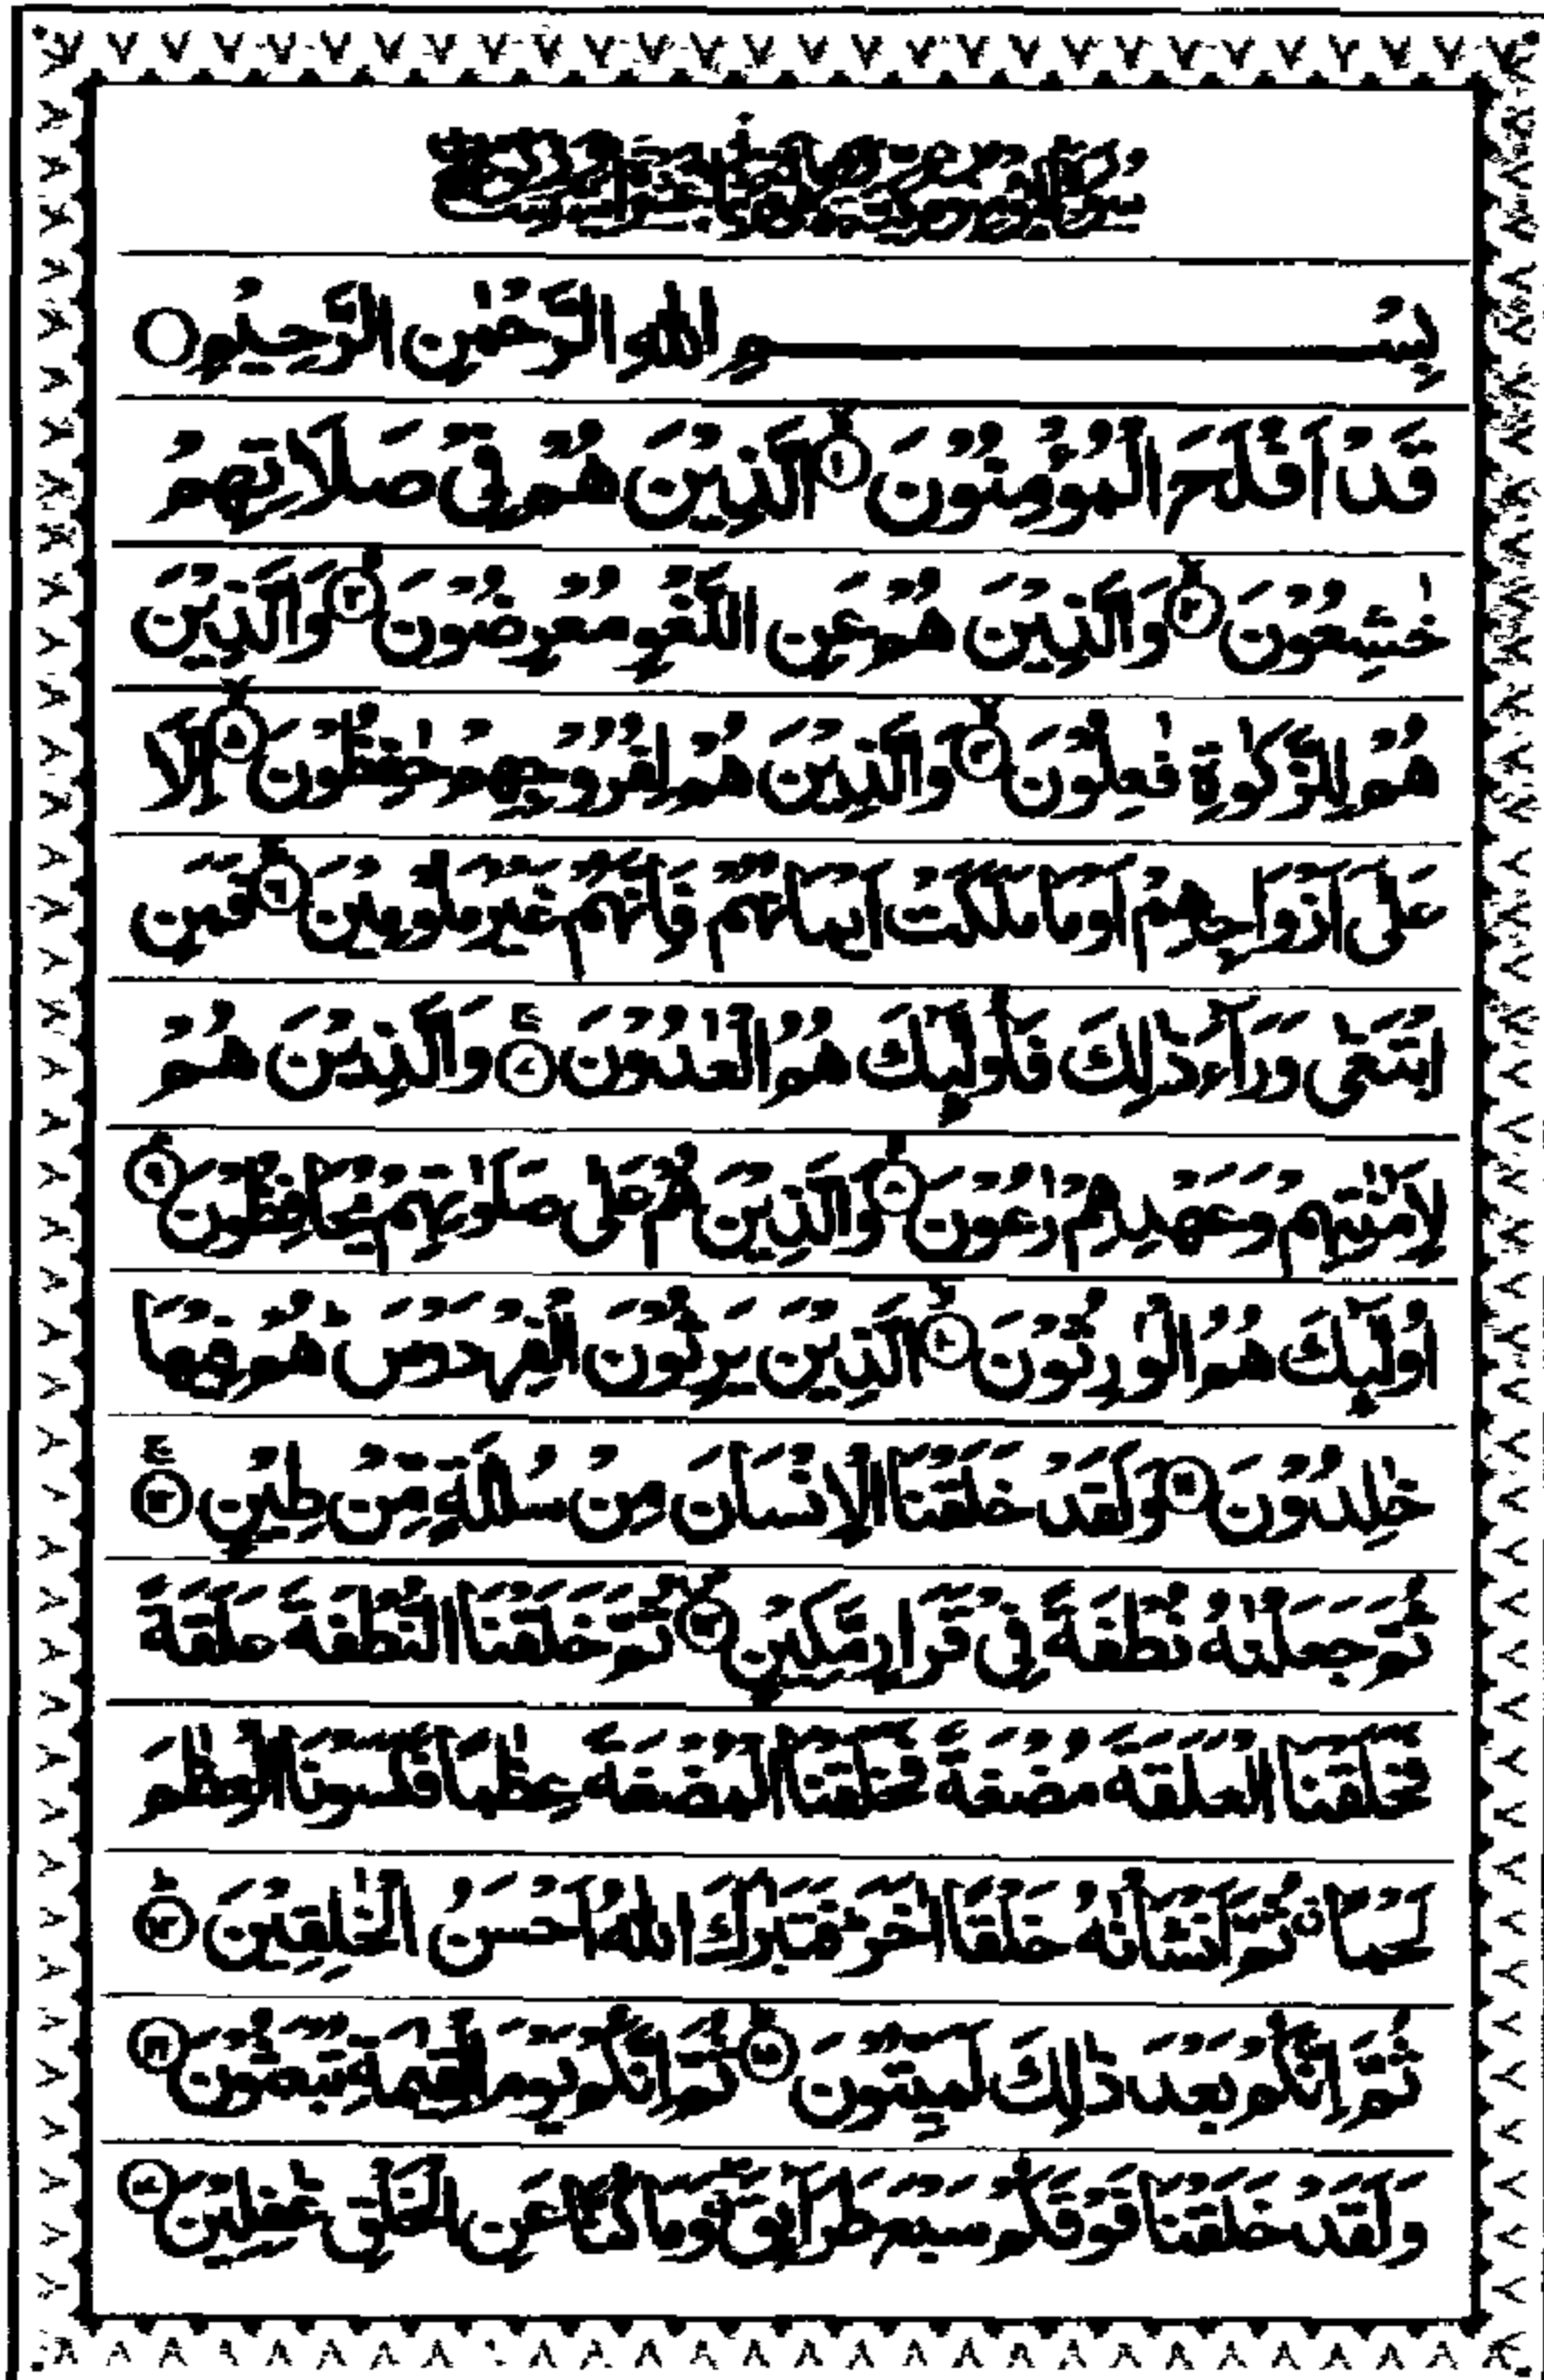 بِسْمِ اللهِ الرَّحْمٰنِ الرَّحِيْمِ
قَدْ اَفْلَحَ الْمُؤْمِنُوْنَ ۝۱ الَّذِيْنَ هُمْ فِيْ صَلَاتِهِمْ
خٰشِعُوْنَ ۝۲ وَالَّذِيْنَ هُمْ عَنِ اللَّغْوِ مُعْرِضُوْنَ ۝۳ وَالَّذِيْنَ
هُمْ لِلزَّكٰوةِ فٰعِلُوْنَ ۝۴ وَالَّذِيْنَ هُمْ لِفُرُوْجِهِمْ حٰفِظُوْنَ ۝۵ اِلَّا
عَلٰٓى اَزْوَاجِهِمْ اَوْ مَا مَلَكَتْ اَيْمَانُهُمْ فَاِنَّهُمْ غَيْرُ مَلُوْمِيْنَ ۝۶ فَمَنِ
ابْتَغٰى وَرَآءَ ذٰلِكَ فَاُولٰٓئِكَ هُمُ الْعٰدُوْنَ ۝۷ وَالَّذِيْنَ هُمْ
لِاَمٰنٰتِهِمْ وَعَهْدِهِمْ رٰعُوْنَ ۝۸ وَالَّذِيْنَ هُمْ عَلٰى صَلَوٰتِهِمْ يُحَافِظُوْنَ ۝۹
اُولٰٓئِكَ هُمُ الْوٰرِثُوْنَ ۝۱۰ الَّذِيْنَ يَرِثُوْنَ الْفِرْدَوْسَ ؕ هُمْ فِيْهَا
خٰلِدُوْنَ ۝۱۱ وَلَقَدْ خَلَقْنَا الْاِنْسَانَ مِنْ سُلٰلَةٍ مِّنْ طِيْنٍ ۝۱۲
ثُمَّ جَعَلْنٰهُ نُطْفَةً فِيْ قَرَارٍ مَّكِيْنٍ ۝۱۳ ثُمَّ خَلَقْنَا النُّطْفَةَ عَلَقَةً
فَخَلَقْنَا الْعَلَقَةَ مُضْغَةً فَخَلَقْنَا الْمُضْغَةَ عِظٰمًا فَكَسَوْنَا الْعِظٰمَ
لَحْمًا ۗ ثُمَّ اَنْشَاْنٰهُ خَلْقًا اٰخَرَ ؕ فَتَبٰرَكَ اللهُ اَحْسَنُ الْخٰلِقِيْنَ ۝۱۴
ثُمَّ اِنَّكُمْ بَعْدَ ذٰلِكَ لَمَيِّتُوْنَ ۝۱۵ ثُمَّ اِنَّكُمْ يَوْمَ الْقِيٰمَةِ تُبْعَثُوْنَ ۝۱۶
وَلَقَدْ خَلَقْنَا فَوْقَكُمْ سَبْعَ طَرَآئِقَ ۖ وَمَا كُنَّا عَنِ الْخَلْقِ غٰفِلِيْنَ ۝۱۷